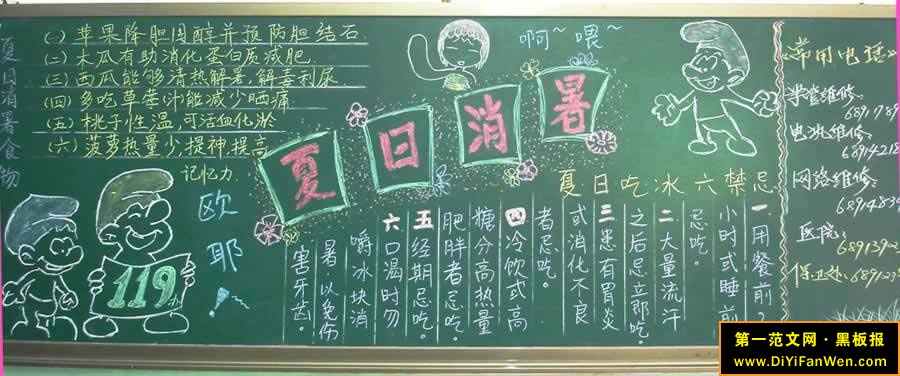 夏日消暑食物
(一) 苹果降胆固醇并预防胆结石
(二) 木瓜有助消化蛋白质减肥
(三) 西瓜能够清热解暑,解毒利尿
(四) 多吃草莓汁能减少晒痛
(五) 桃子性温,可活血化淤
(六) 菠萝热量少,提神提高
记忆力.
啊~喂~
夏日消暑
欧耶!
119
夏日吃冰六禁忌
一用餐前
小时或睡前
忌吃。
二大量流汗
之后忌立即吃。
三患有胃炎
或消化不良
者忌吃。
四冷饮或高
糖分高热量
肥胖者忌吃。
五经期忌吃。
六口温时勿
嚼冰块消
暑以免伤
害牙齿。
《常用电话》
维修:
维修:
68914218
网络维修:
6891483
医院:
689139
保卫处:
第一范文网·黑板报
www.DiYiFanWen.com